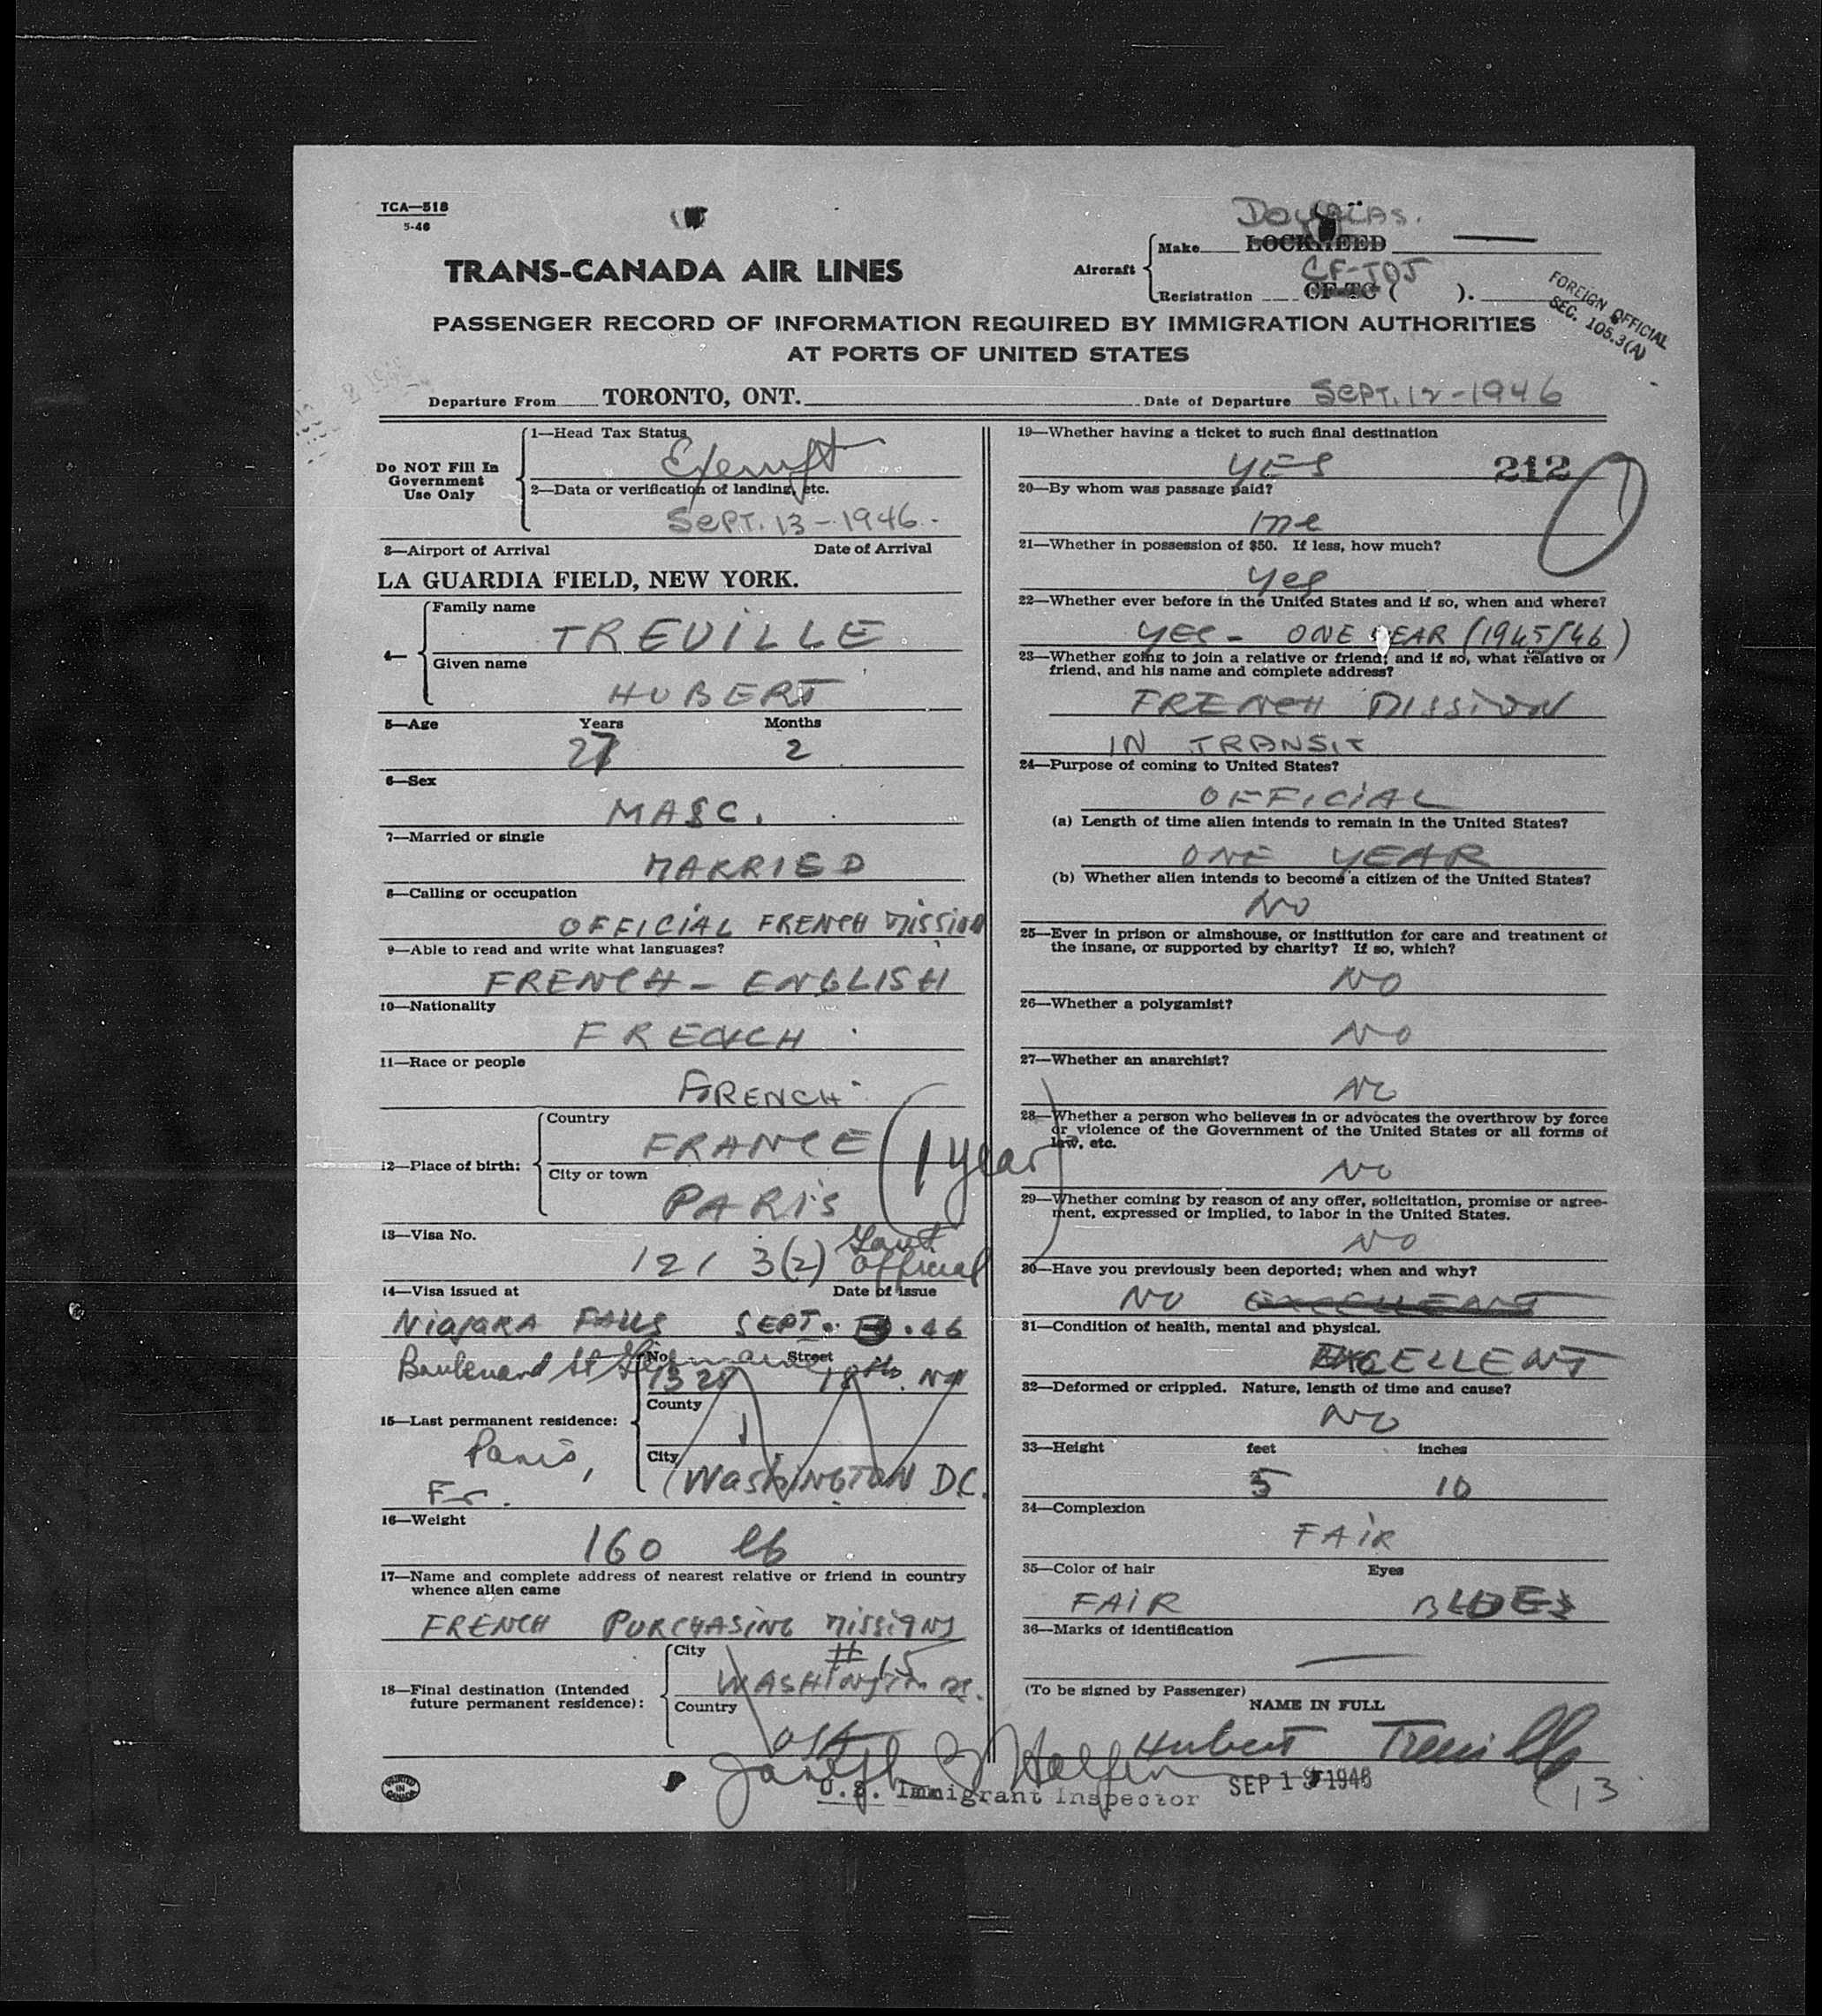 TCA—518
5-46
DOUGLAS.
TRANS-CANADA AIR LINES
Aircraft
Make LOCKHEED
CF-TDJ
Registration CF-TC ( ).
FOREIGN OFFICIAL
SEC. 105.3(A)
PASSENGER RECORD OF INFORMATION REQUIRED BY IMMIGRATION AUTHORITIES
AT PORTS OF UNITED STATES
Departure From TORONTO, ONT. Date of Departure SEPT. 12-1946
Do NOT Fill In
Government
Use Only
1—Head Tax Status
Exempt
2—Data or verification of landing, etc.
SEPT. 13-1946.
3—Airport of Arrival Date of Arrival
LA GUARDIA FIELD, NEW YORK.
4—
Family name
TREVILLE
Given name
HUBERT
5—Age Years Months
27 2
6—Sex
MASC.
7—Married or single
MARRIED
8—Calling or occupation
OFFICIAL FRENCH MISSION
9—Able to read and write what languages?
FRENCH - ENGLISH
10—Nationality
FRENCH
11—Race or people
FRENCH
12—Place of birth:
Country
FRANCE
City or town
PARIS
(1 year)
13—Visa No.
121 3(2) Govt. Official
14—Visa issued at Date of issue
NIAGARA FALLS SEPT. .46
Boulevard St Germaine
No. Street
1328 18th. NW
County
15—Last permanent residence:
Paris,
Fr.
City
WASHINGTON DC.
16—Weight
160 lb
17—Name and complete address of nearest relative or friend in country
whence alien came
FRENCH PURCHASING MISSIONS
# 15
18—Final destination (Intended
future permanent residence):
City
WASHINGTON DC.
Country
USA
19—Whether having a ticket to such final destination
YES 212
20—By whom was passage paid?
me
21—Whether in possession of $50. If less, how much?
yes
22—Whether ever before in the United States and if so, when and where?
YES - ONE YEAR (1945/46)
23—Whether going to join a relative or friend; and if so, what relative or
friend, and his name and complete address?
FRENCH MISSION
IN TRANSIT
24—Purpose of coming to United States?
OFFICIAL
(a) Length of time alien intends to remain in the United States?
ONE YEAR
(b) Whether alien intends to become a citizen of the United States?
NO
25—Ever in prison or almshouse, or institution for care and treatment of
the insane, or supported by charity? If so, which?
NO
26—Whether a polygamist?
NO
27—Whether an anarchist?
NO
28—Whether a person who believes in or advocates the overthrow by force
or violence of the Government of the United States or all forms of
law, etc.
NO
29—Whether coming by reason of any offer, solicitation, promise or agree-
ment, expressed or implied, to labor in the United States.
NO
30—Have you previously been deported; when and why?
NO EXCELLENT
31—Condition of health, mental and physical.
EXCELLENT
32—Deformed or crippled. Nature, length of time and cause?
NO
33—Height feet inches
5 10
34—Complexion
FAIR
35—Color of hair Eyes
FAIR BLUE
36—Marks of identification
(To be signed by Passenger)
NAME IN FULL
Hubert Treville
Joseph Halfen
U.S. Immigrant Inspector
SEP 13 1946
13
PRINTED IN CANADA